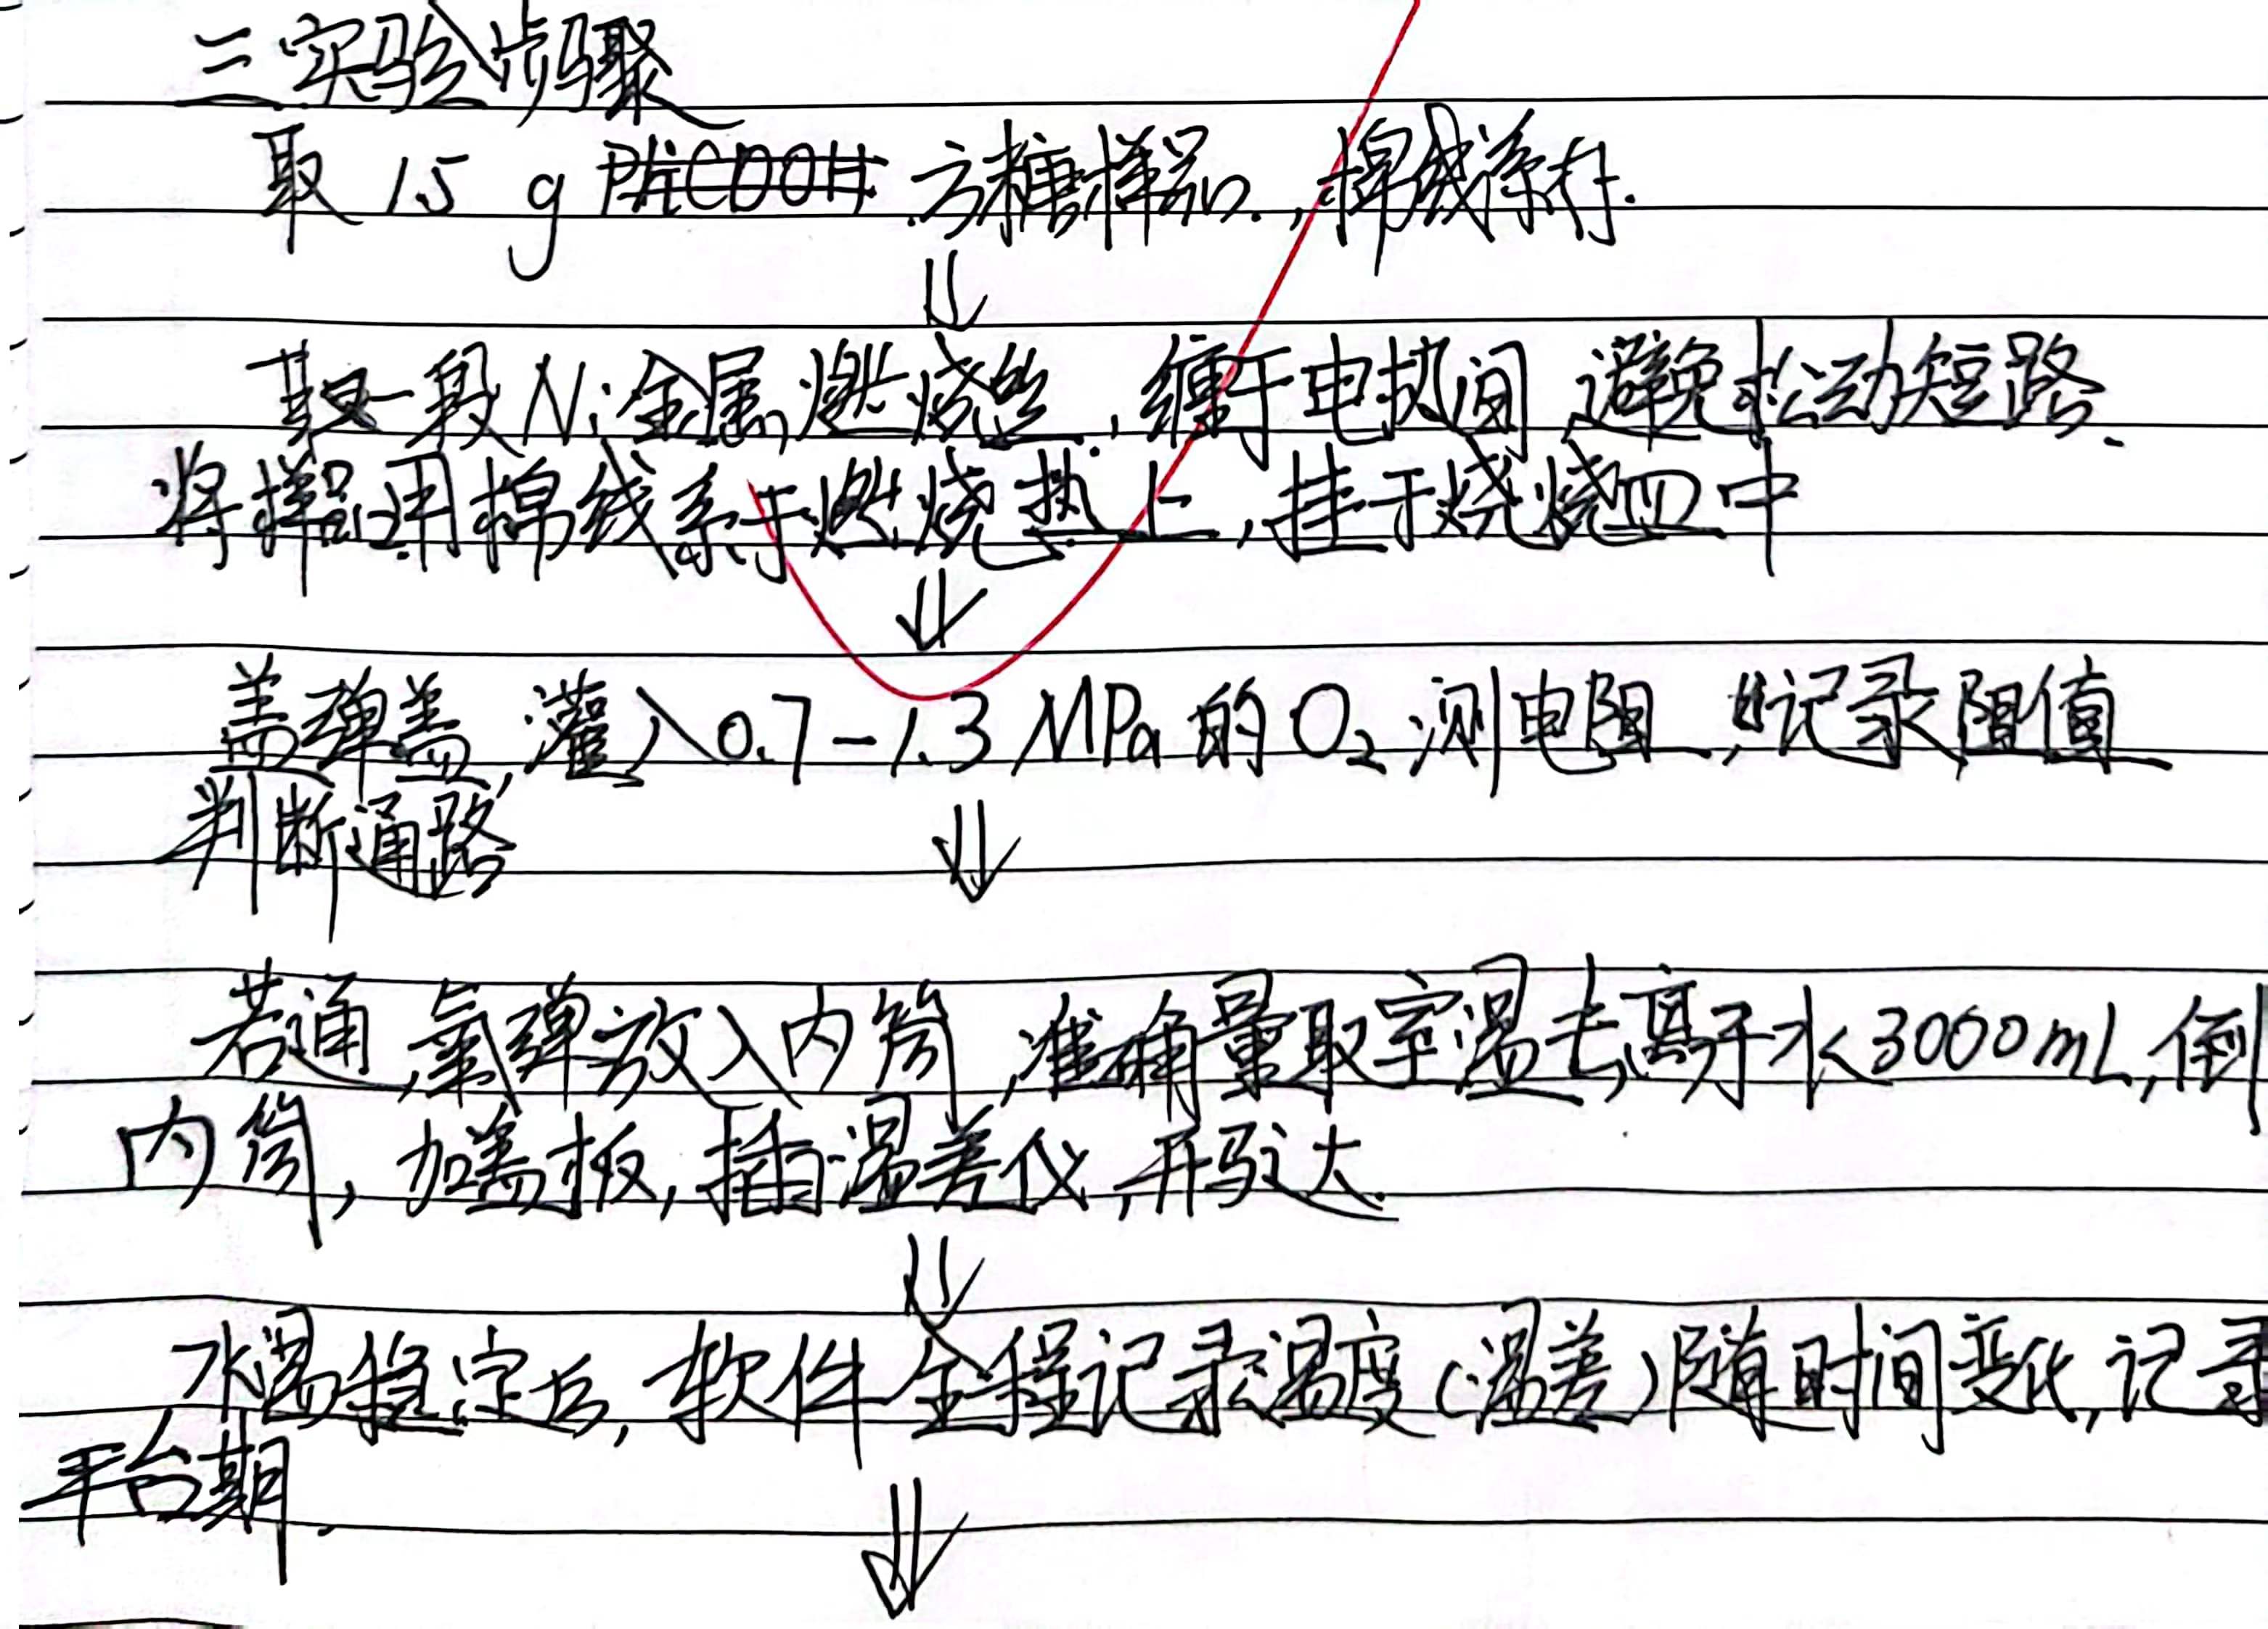 三实验步骤
取 1.5 g P̶h̶C̶O̶O̶H̶ 方糖样品,棉线系好.
⇓
取一段Ni金属燃烧丝,缠于电热间,避免松动短路.
将样品用棉线系于燃烧热上,挂于烧烧皿中
⇓
盖弹盖,灌入0.7-1.3MPa的O₂测电阻,记录阻值
判断通路 ⇓
若通,氧弹放入内筒,准确量取室温去离子水3000mL,倒
内筒,加盖板,插温差仪,开
⇓
水温稳定后,软件全程记录温度(温差)随时间变化,记录
平台期.
⇓